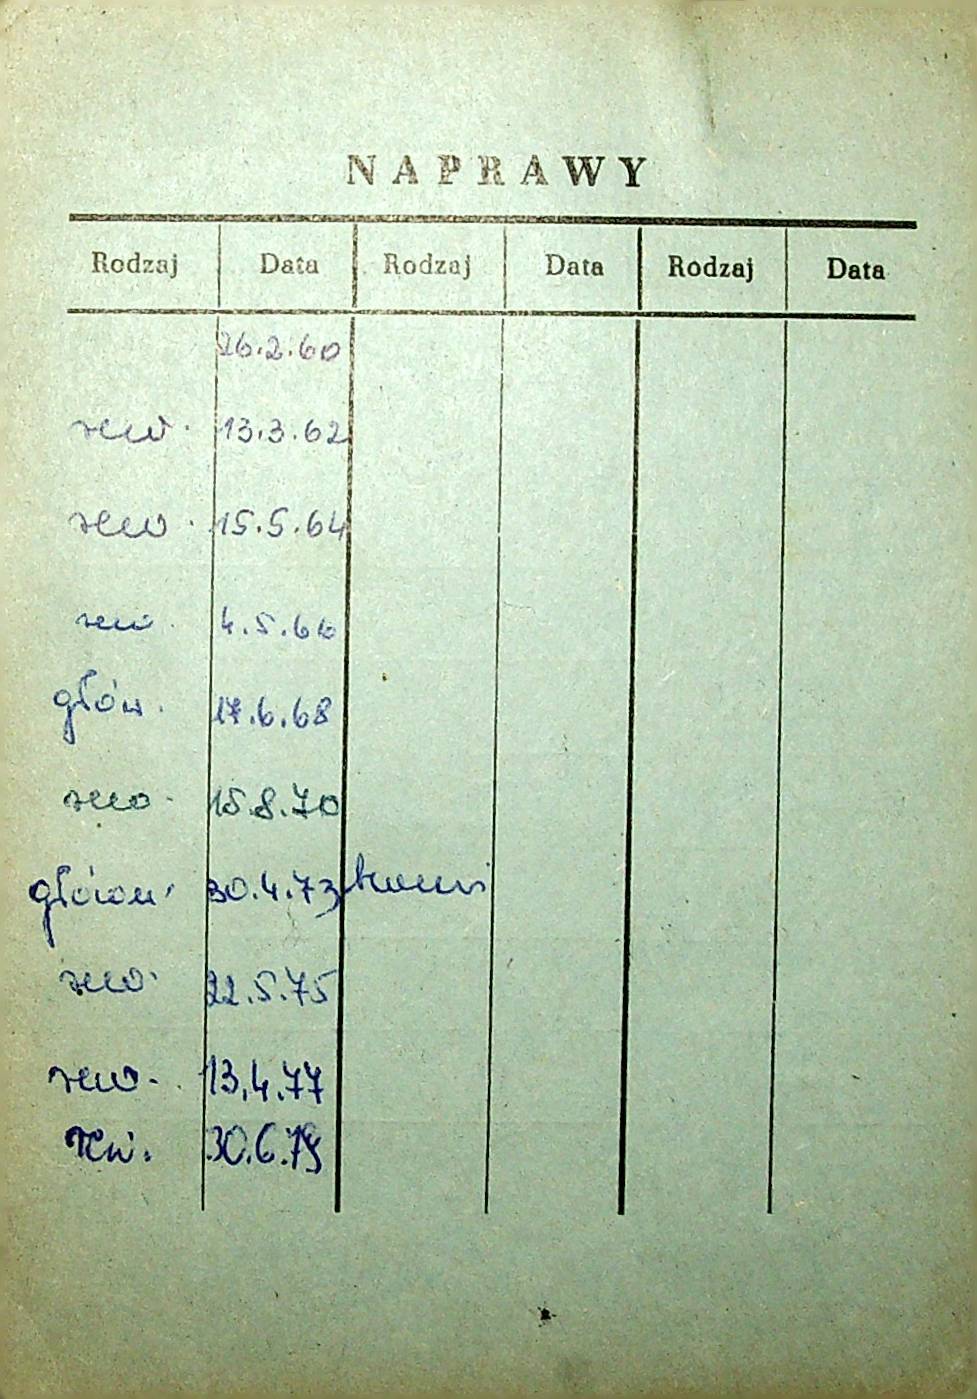 NAPRAWY
Rodzaj Data Rodzaj Data Rodzaj Data
26.2.60
rew. 13.3.62
rew. 15.5.64
rew. 4.5.66
głów. 17.6.68
rew. 15.8.70
główn. 30.4.73
rew. 22.5.75
rew. 13.4.77
rew. 30.6.79